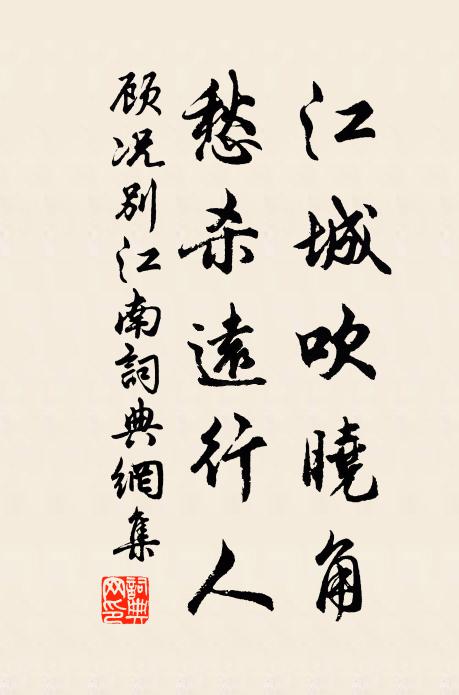 江城吹曉角
愁杀遠行人
顾况别江南詞典網集
詞典网印